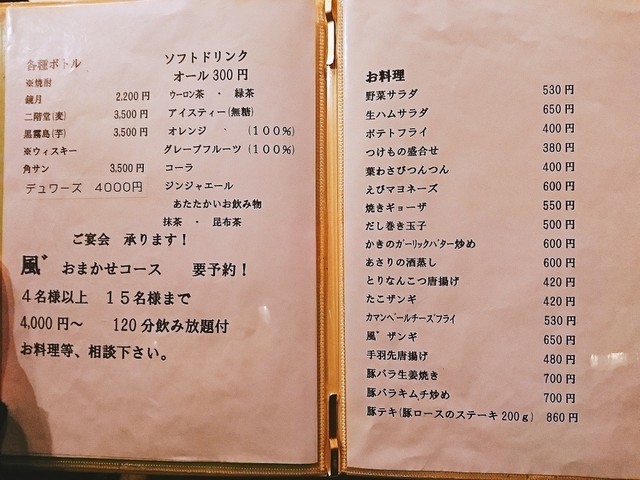 各種ボトル
※焼酎
鏡月 2,200円
二階堂(麦) 3,500円
黒霧島(芋) 3,500円
※ウィスキー
角サン 3,500円
デュワーズ 4000円
ソフトドリンク
オール300円
ウーロン茶 ・ 緑茶
アイスティー(無糖)
オレンジ 、 (100%)
グレープフルーツ(100%)
コーラ
ジンジャエール
あたたかいお飲み物
抹茶 ・ 昆布茶
ご宴会 承ります!
風゛ おまかせコース 要予約!
4名様以上 15名様まで
4,000円〜 120分飲み放題付
お料理等、相談下さい。
お料理
野菜サラダ 530円
生ハムサラダ 650円
ポテトフライ 400円
つけもの盛合せ 380円
葉わさびつんつん 400円
えびマヨネーズ 600円
焼きギョーザ 550円
だし巻き玉子 500円
かきのガーリックバター炒め 600円
あさりの酒蒸し 600円
とりなんこつ唐揚げ 420円
たこザンギ 420円
カマンベールチーズフライ 530円
風゛ザンギ 650円
手羽先唐揚げ 480円
豚バラ生姜焼き 700円
豚バラキムチ炒め 700円
豚テキ(豚ロースのステーキ200g) 860円